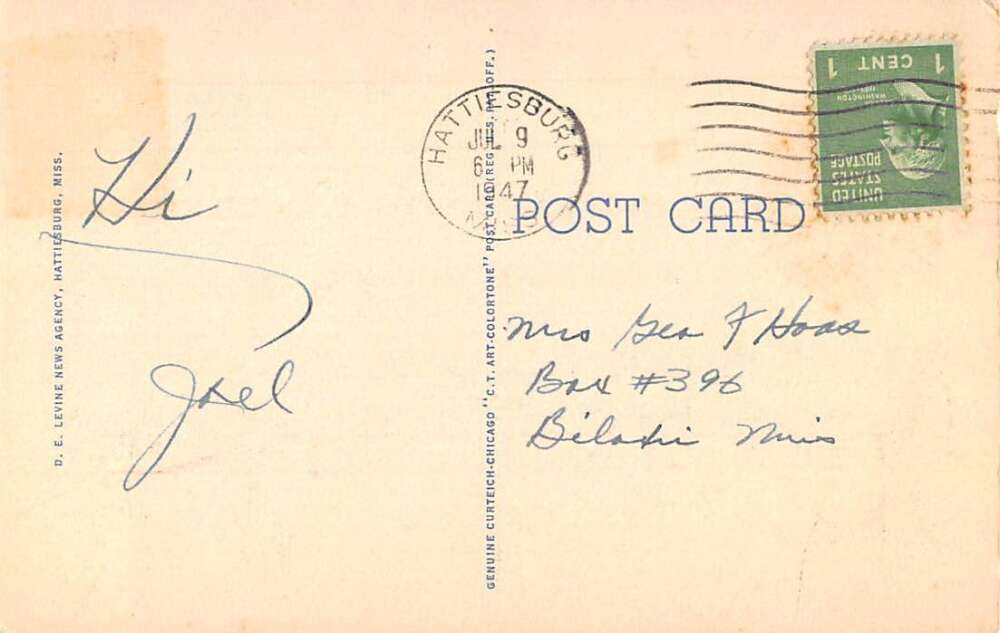 Hi
Joel
D. E. LEVINE NEWS AGENCY, HATTIESBURG, MISS.
GENUINE CURTEICH-CHICAGO "C.T. ART-COLORTONE" POST CARD (REG. U.S. PAT. OFF.)
HATTIESBURG
JUL 9
6 PM
1947
POST CARD
1 CENT 1
WASHINGTON
UNITED
STATES
POSTAGE
Mrs Geo F Haas
Box #396
Biloxi Miss